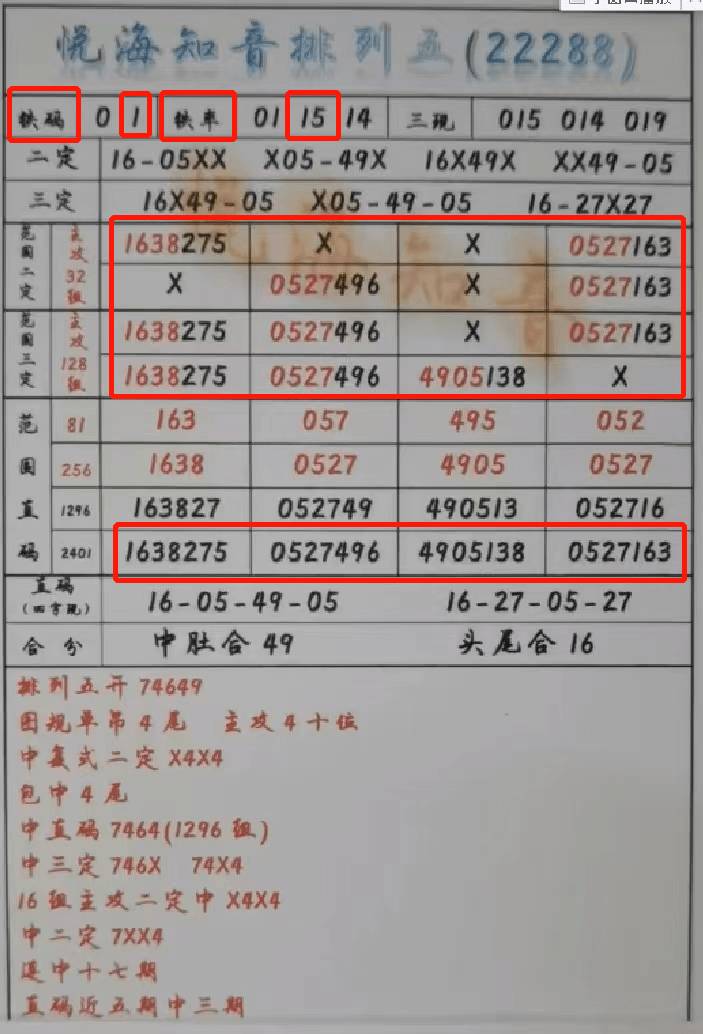 悦海知音排列五(22288)
铁码 0 1 铁率 01 15 14 三现 015 014 019
二定 16-05XX X05-49X 16X49X XX49-05
三定 16X49-05 X05-49-05 16-27X27
范围二定 主攻32组 1638275 X X 0527163
X 0527496 X 0527163
范围三定 主攻128组 1638275 0527496 X 0527163
1638275 0527496 4905138 X
范围直码 81 163 057 495 052
256 1638 0527 4905 0527
1296 163827 052749 490513 052716
2401 1638275 0527496 4905138 0527163
直码(四字现) 16-05-49-05 16-27-05-27
合分 中肚合49 头尾合16
排列五开74649
图规单吊4尾 主攻4十位
中复式二定X4X4
包中4尾
中直码7464(1296组)
中三定746X 74X4
16组主攻二定中X4X4
中二定7XX4
连中十七期
直码近五期中三期